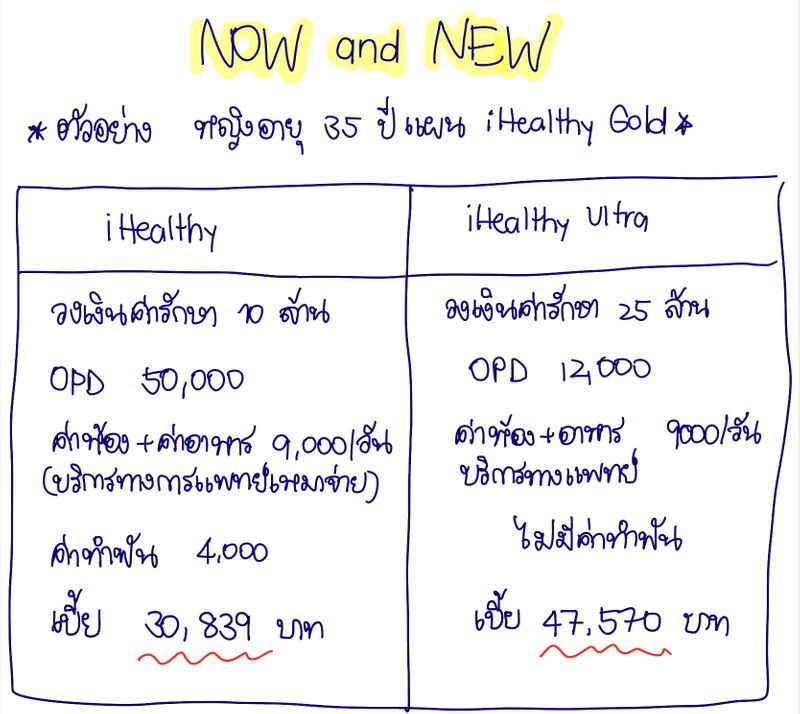 NOW and NEW
*ตัวอย่าง หญิงอายุ 35 ปี แผน iHealthy Gold*
iHealthy
วงเงินค่ารักษา 10 ล้าน
OPD 50,000
ค่าห้อง+ค่าอาหาร 9,000/วัน
(บริการทางการแพทย์เหมาจ่าย)
ค่าทำฟัน 4,000
เบี้ย 30,839 บาท
iHealthy Ultra
วงเงินค่ารักษา 25 ล้าน
OPD 12,000
ค่าห้อง+อาหาร 9000/วัน
บริการทางแพทย์
ไม่มีค่าทำฟัน
เบี้ย 47,570 บาท